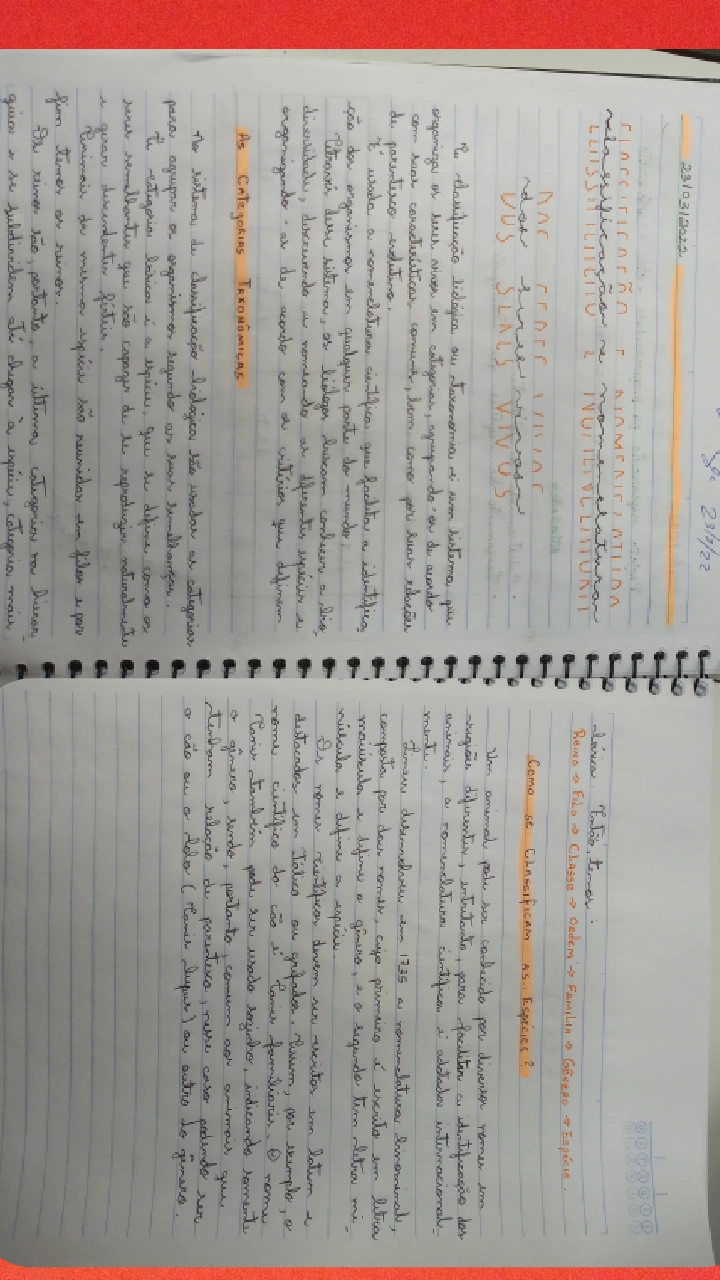 23/03/2022
23/3/22
Classificação e nomenclatura
dos seres vivos
A classificação biológica ou taxonomia é um sistema que
organiza os seres vivos em categorias, agrupando-os de acordo
com suas características comuns, bem como por suas relações
de parentesco evolutivo.
É usada a nomenclatura científica que facilita a identifica
ção dos organismos em qualquer parte do mundo.
Através desse sistema, os biólogos buscam conhecer a bio
diversidade, descrevendo e nomeando as diferentes espécies e
organizando-as de acordo com os critérios que definem.
As Categorias Taxonômicas
No sistema de classificação biológica são usadas as categorias
para agupar os organismos segundo as suas semelhanças.
A categoria básica é a espécie, que se define como os
seres semelhantes que são capazes de se reproduzir naturalmente
e gerar descendentes férteis.
Animais da mesma espécie são reunidos em filos e por
fim temos os reinos.
Os reinos são, portanto, a última categoria na hierar
quia e se subdividem até chegar à espécie, categoria mais
básica. Então, temos:
Reino → Filo → Classe → Ordem → Família → Gênero → Espécie.
Como se Classificam as Espécies?
Um animal pode ser conhecido por diversos nomes em
regiões diferentes, entretanto, para facilitar a identificação dos
animais, a nomenclatura científica é adotada internacional-
mente.
Lineu desenvolveu em 1735 a nomenclatura binominal,
composta por dois nomes, cujo primeiro é escrito em letra
maiúscula e define o gênero, e o segundo tem letra mi-
núscula e define a espécie.
Os nomes científicos devem ser escritos em latim e
destacados em itálico ou grifados. Assim, por exemplo, o
nome científico do cão é Canis familiaris. O nome
Canis também pode ser usado sozinho, indicando somente
o gênero, sendo, portanto, comum aos animais que
tenham relação de parentesco, nesse caso podendo ser
o cão ou o lobo (Canis lupus) ou outro do gênero.